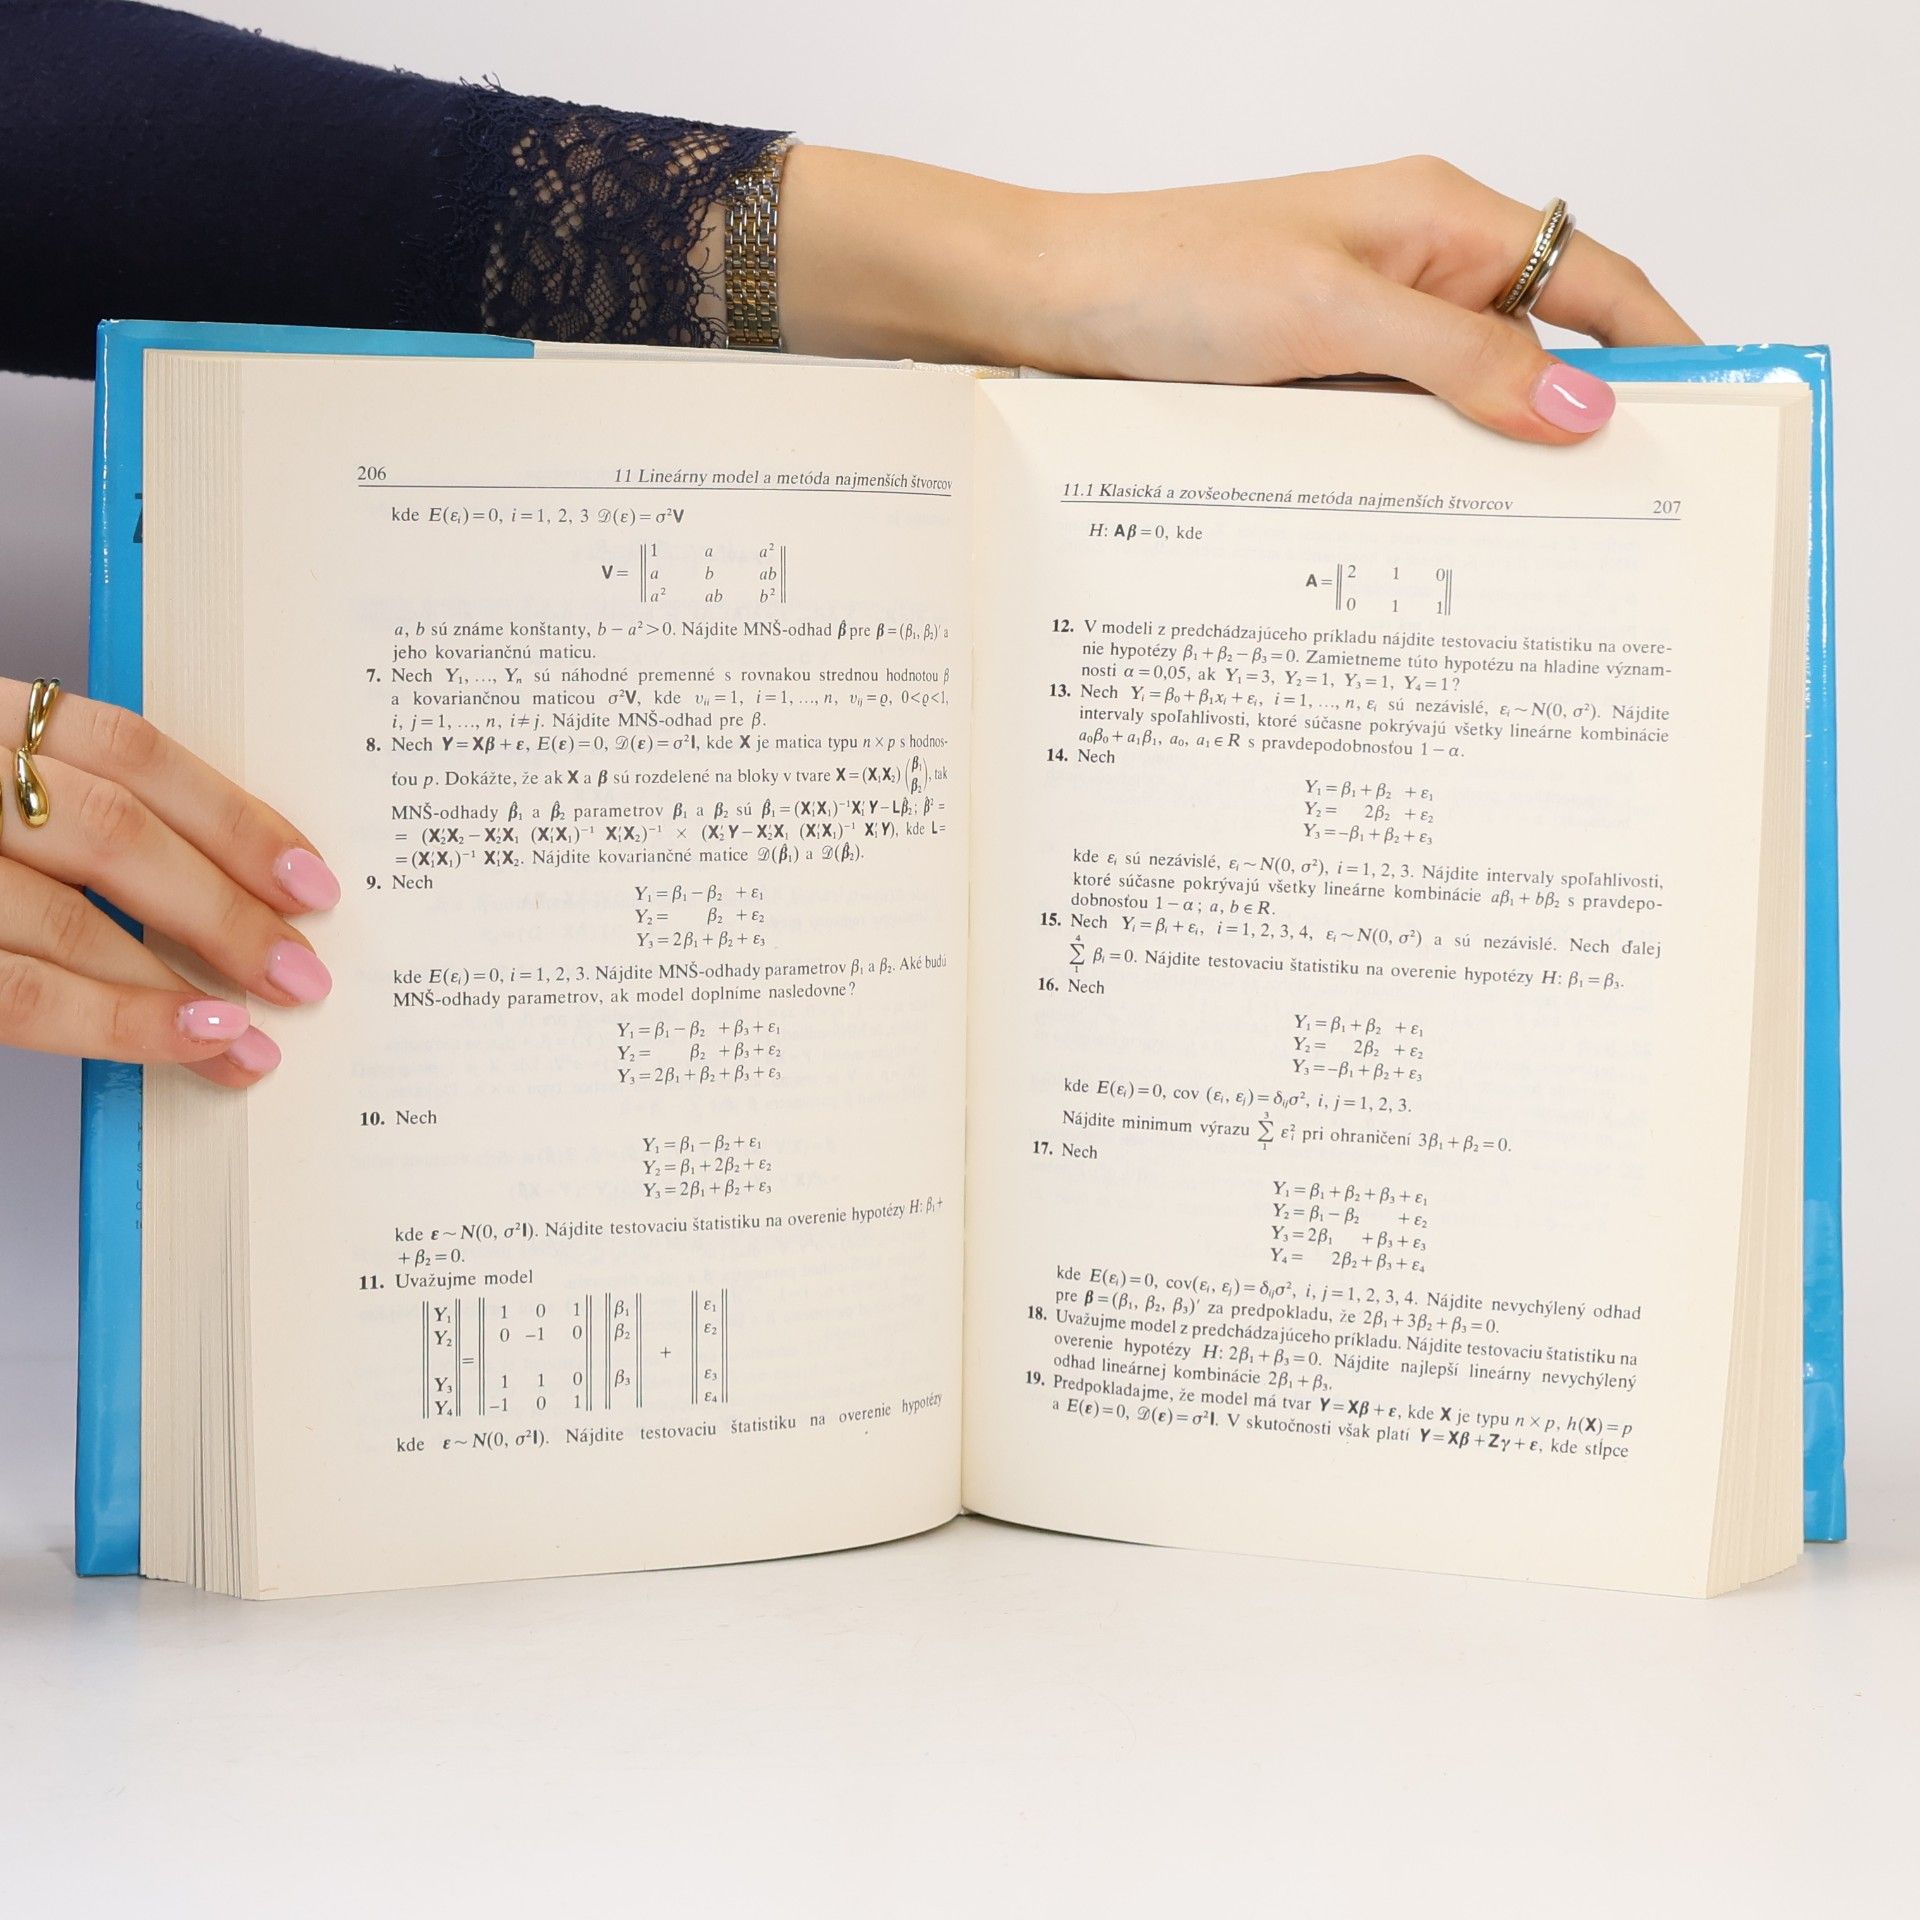 206 11 Lineárny model a metóda najmenších štvorcov
kde E(εᵢ)=0, i=1, 2, 3 𝒟(ε)=σ²V
1 a a²
V= a b ab
a² ab b²
a, b sú známe konštanty, b − a²>0. Nájdite MNŠ-odhad β̂ pre β=(β₁, β₂)′ a
jeho kovariančnú maticu.
7. Nech Y₁, ..., Yₙ sú náhodné premenné s rovnakou strednou hodnotou β
a kovariančnou maticou σ²V, kde vᵢᵢ=1, i=1, ..., n, vᵢⱼ=ϱ, 0<ϱ<1,
i, j=1, ..., n, i≠j. Nájdite MNŠ-odhad pre β.
8. Nech Y=Xβ+ε, E(ε)=0, 𝒟(ε)=σ²I, kde X je matica typu n×p s hodnos-
ťou p. Dokážte, že ak X a β sú rozdelené na bloky v tvare X=(X₁X₂) (β₁ β₂), tak
MNŠ-odhady β̂₁ a β̂₂ parametrov β₁ a β₂ sú β̂₁=(X₁′X₁)⁻¹X₁′Y−Lβ̂₂; β̂² =
= (X₂′X₂−X₂′X₁ (X₁′X₁)⁻¹ X₁′X₂)⁻¹ × (X₂′Y−X₂′X₁ (X₁′X₁)⁻¹ X₁′Y), kde L=
=(X₁′X₁)⁻¹ X₁′X₂. Nájdite kovariančné matice 𝒟(β̂₁) a 𝒟(β̂₂).
9. Nech
Y₁=β₁−β₂ +ε₁
Y₂= β₂ +ε₂
Y₃=2β₁+β₂+ε₃
kde E(εᵢ)=0, i=1, 2, 3. Nájdite MNŠ-odhady parametrov β₁ a β₂. Aké budú
MNŠ-odhady parametrov, ak model doplníme nasledovne?
Y₁=β₁−β₂ +β₃+ε₁
Y₂= β₂ +β₃+ε₂
Y₃=2β₁+β₂+β₃+ε₃
10. Nech
Y₁=β₁−β₂+ε₁
Y₂=β₁+2β₂+ε₂
Y₃=2β₁+β₂+ε₃
kde ε∼N(0, σ²I). Nájdite testovaciu štatistiku na overenie hypotézy H: β₁+
+β₂=0.
11. Uvažujme model
Y₁ 1 0 1 β₁ ε₁
Y₂ 0 −1 0 β₂ ε₂
= +
Y₃ 1 1 0 β₃ ε₃
Y₄ −1 0 1 ε₄
kde ε∼N(0, σ²I). Nájdite testovaciu štatistiku na overenie hypotézy
11.1 Klasická a zovšeobecnená metóda najmenších štvorcov 207
H: Aβ=0, kde
A= 2 1 0
0 1 1
12. V modeli z predchádzajúceho príkladu nájdite testovaciu štatistiku na overe-
nie hypotézy β₁+β₂−β₃=0. Zamietneme túto hypotézu na hladine význam-
nosti α=0,05, ak Y₁=3, Y₂=1, Y₃=1, Y₄=1?
13. Nech Yᵢ=β₀+β₁xᵢ+εᵢ, i=1, ..., n, εᵢ sú nezávislé, εᵢ∼N(0, σ²). Nájdite
intervaly spoľahlivosti, ktoré súčasne pokrývajú všetky lineárne kombinácie
a₀β₀+a₁β₁, a₀, a₁∈R s pravdepodobnosťou 1−α.
14. Nech
Y₁=β₁+β₂ +ε₁
Y₂= 2β₂ +ε₂
Y₃=−β₁+β₂+ε₃
kde εᵢ sú nezávislé, εᵢ∼N(0, σ²), i=1, 2, 3. Nájdite intervaly spoľahlivosti,
ktoré súčasne pokrývajú všetky lineárne kombinácie aβ₁+bβ₂ s pravdepo-
dobnosťou 1−α; a, b∈R.
15. Nech Yᵢ=βᵢ+εᵢ, i=1, 2, 3, 4, εᵢ∼N(0, σ²) a sú nezávislé. Nech ďalej
4 ∑ 1 βᵢ=0. Nájdite testovaciu štatistiku na overenie hypotézy H: β₁=β₃.
16. Nech
Y₁=β₁+β₂ +ε₁
Y₂= 2β₂ +ε₂
Y₃=−β₁+β₂+ε₃
kde E(εᵢ)=0, cov (εᵢ, εⱼ)=δᵢⱼσ², i, j=1, 2, 3.
Nájdite minimum výrazu 3 ∑ 1 εᵢ² pri ohraničení 3β₁+β₂=0.
17. Nech
Y₁=β₁+β₂+β₃+ε₁
Y₂=β₁−β₂ +ε₂
Y₃=2β₁ +β₃+ε₃
Y₄= 2β₂+β₃+ε₄
kde E(εᵢ)=0, cov(εᵢ, εⱼ)=δᵢⱼσ², i, j=1, 2, 3, 4. Nájdite nevychýlený odhad
pre β=(β₁, β₂, β₃)′ za predpokladu, že 2β₁+3β₂+β₃=0.
18. Uvažujme model z predchádzajúceho príkladu. Nájdite testovaciu štatistiku na
overenie hypotézy H: 2β₁+β₃=0. Nájdite najlepší lineárny nevychýlený
odhad lineárnej kombinácie 2β₁+β₃.
19. Predpokladajme, že model má tvar Y=Xβ+ε, kde X je typu n×p, h(X)=p
a E(ε)=0, 𝒟(ε)=σ²I. V skutočnosti však platí Y=Xβ+Zγ+ε, kde stĺpce